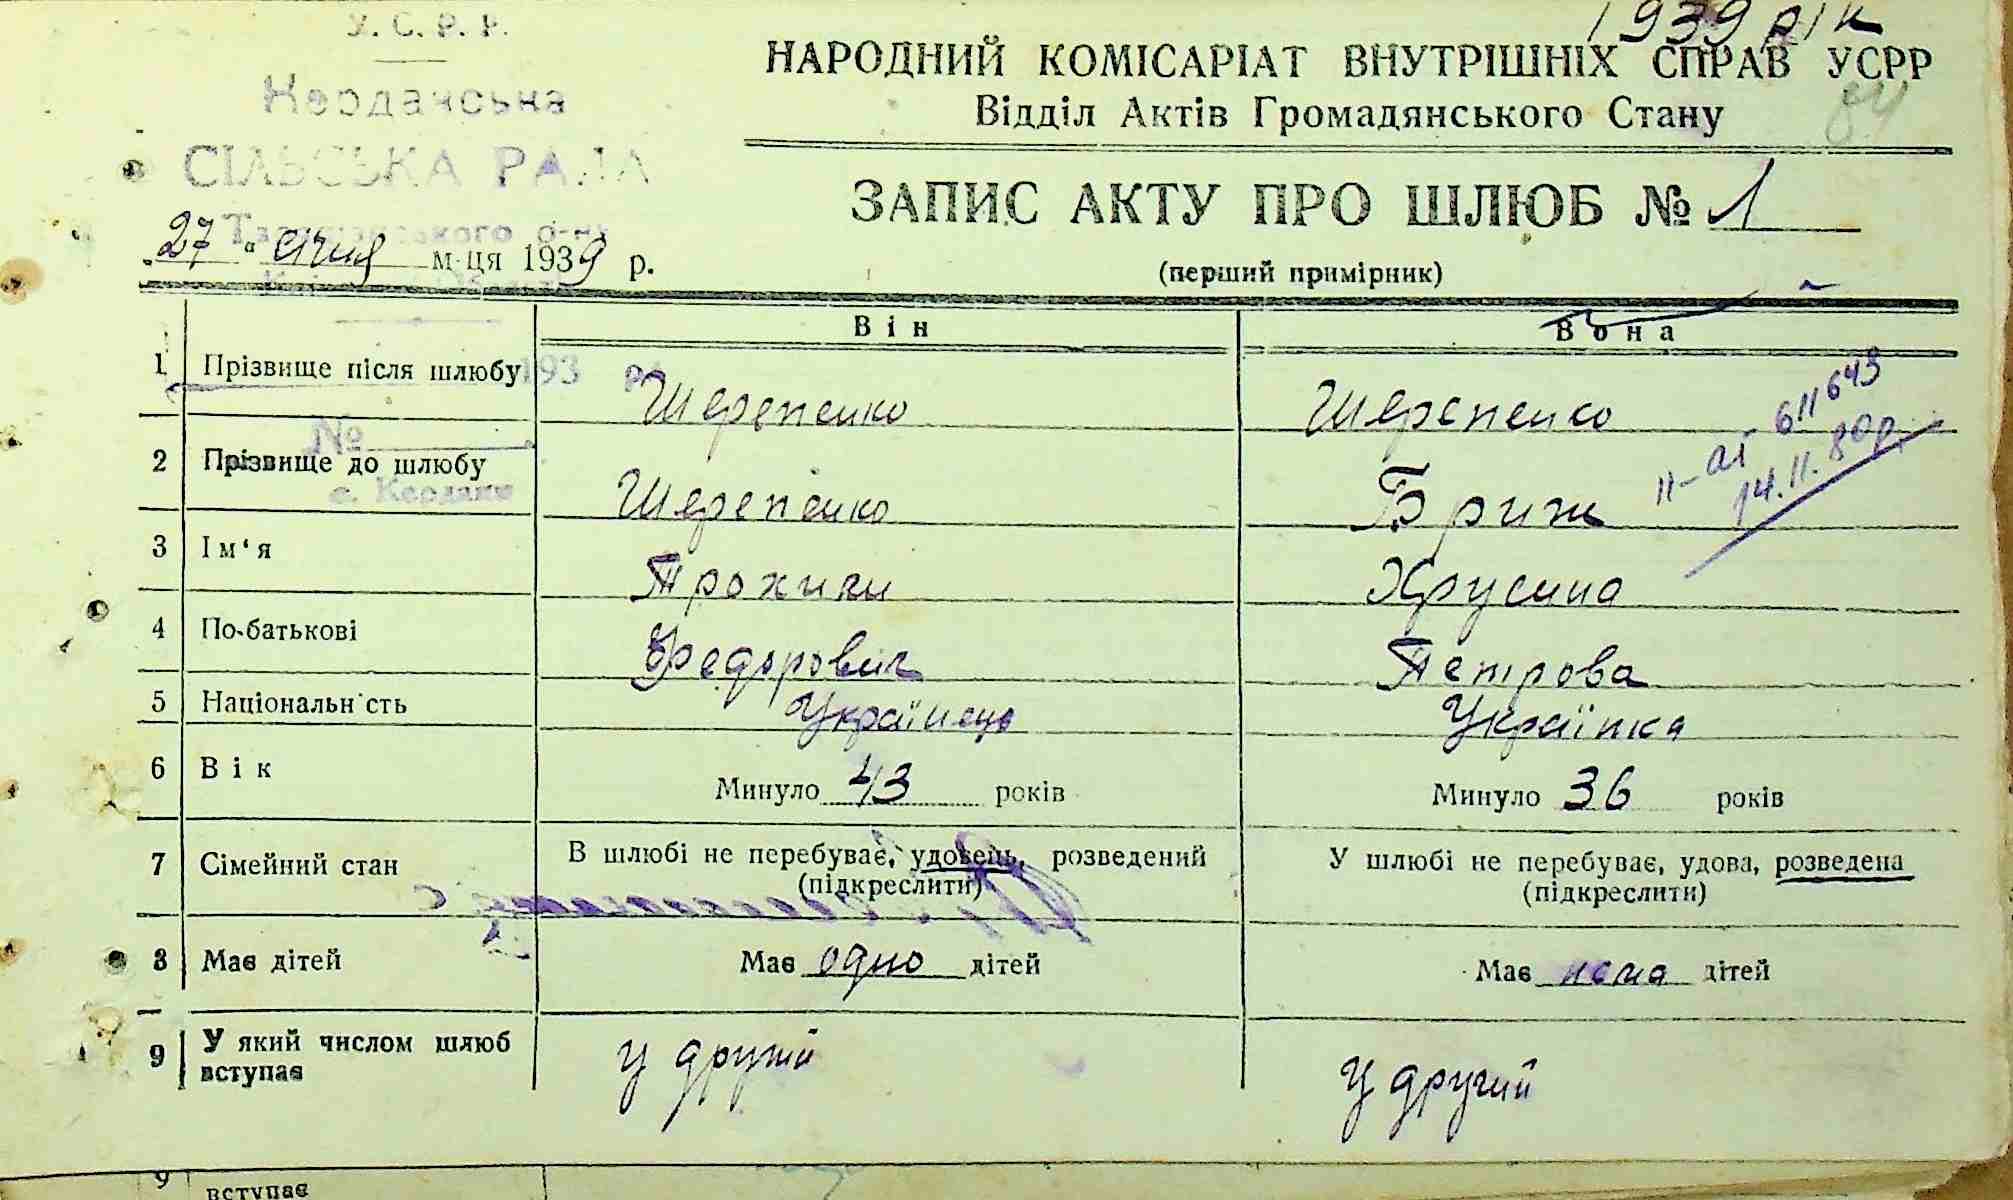 1939 рік
У. С. Р. Р.
НАРОДНИЙ КОМІСАРІАТ ВНУТРІШНІХ СПРАВ УСРР
Керданська
Відділ Актів Громадянського Стану
СІЛЬСЬКА РАДА
ЗАПИС АКТУ ПРО ШЛЮБ № 1
27 " січня м-ця 1939 р.
(перший примірник)
Він Вона
1 Прізвище після шлюбу Шерепенко Шерепенко
193 р.
ІІ-АІ 611643
14.11.80р.
№
2 Прізвище до шлюбу Шерепенко Бриж
с. Кердани
3 Ім'я Трохим Хрусина
4 По-батькові Федорович Петрова
5 Національність Українець Українка
6 Вік Минуло 43 років Минуло 36 років
7 Сімейний стан В шлюбі не перебуває, удовець, розведений У шлюбі не перебуває, удова, розведена
(підкреслити) (підкреслити)
8 Має дітей Має одно дітей Має нема дітей
9 У який числом шлюб вступає у другий у другий
9
вступає